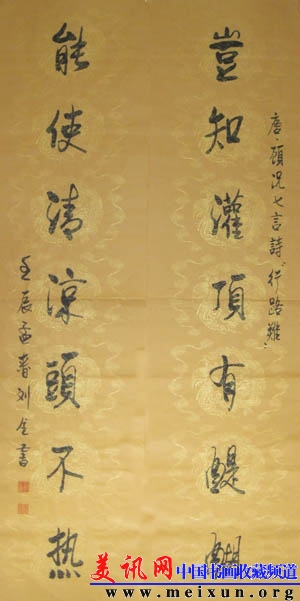 唐·顧況七言詩“行路難”
豈知灌頂有醍醐
能使清涼頭不热
壬辰孟春刘書
美讯网 中国书画收藏频道
www.meixun.org